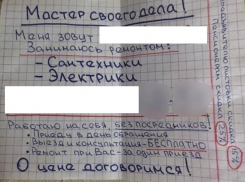 Мастер своего дела!
Меня зовут
Занимаюсь ремонтом:
- Сантехники
- Электрики
Работаю на себя, БЕЗ ПОСРЕДНИКОВ!
• Приеду в день обращения
• Выезд и консультация - БЕСПЛАТНО
• Ремонт при Вас - за один приезд
О цене договоримся!
скидка 15%
Пенсионерам скидка